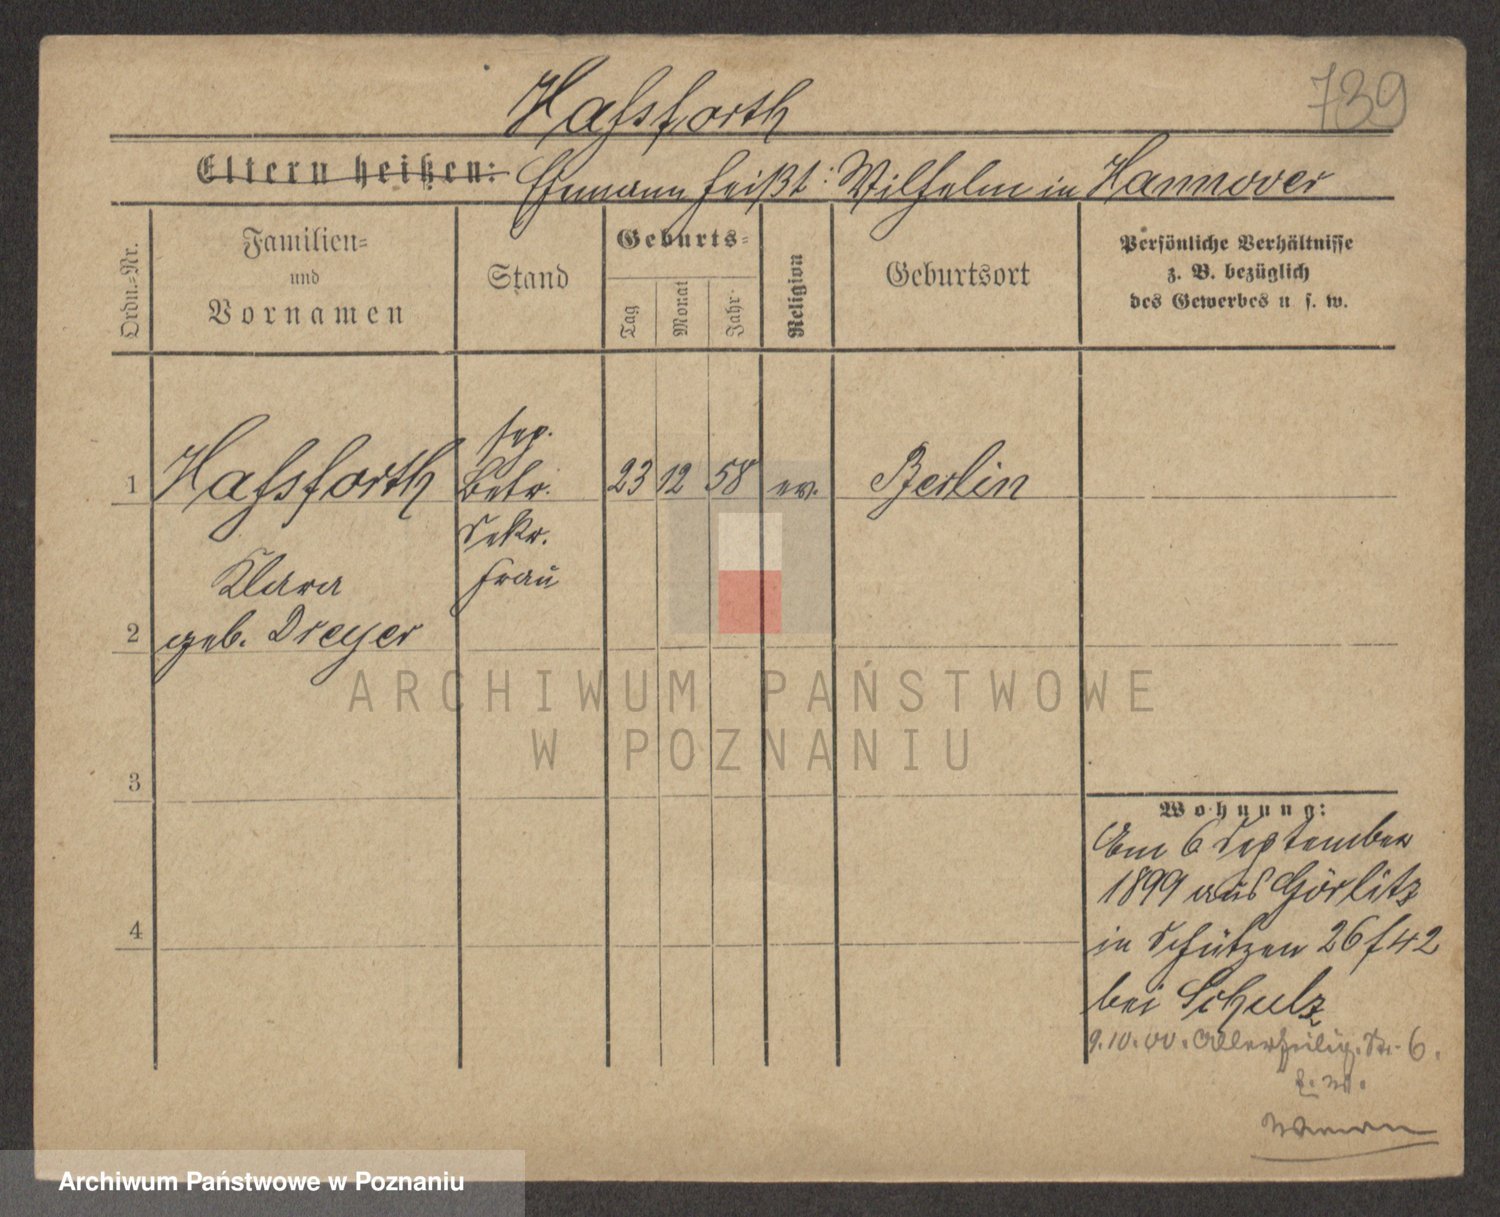 739
Haßforth
Eltern heißen: Ehemann heißt: Wilhelm in Hannover
Ordn.=Nr.
Familien=
und
Vornamen
Stand
Geburts=
Tag
Monat
Jahr
Religion
Geburtsort
Persönliche Verhältnisse
z. B. bezüglich
des Gewerbes u. s. w.
sep.
1 Haßforth Betr. 23 12 58 ev. Berlin
Sekr.
Klara Frau
2 geb. Dreyer
3
4
Wohnung:
Am 6 September
1899 aus Görlitz
in Schützen 26/42
bei Schulz
9.10.00. Allerheilig. Str. 6.
ARCHIWUM PAŃSTWOWE
W POZNANIU
Archiwum Państwowe w Poznaniu